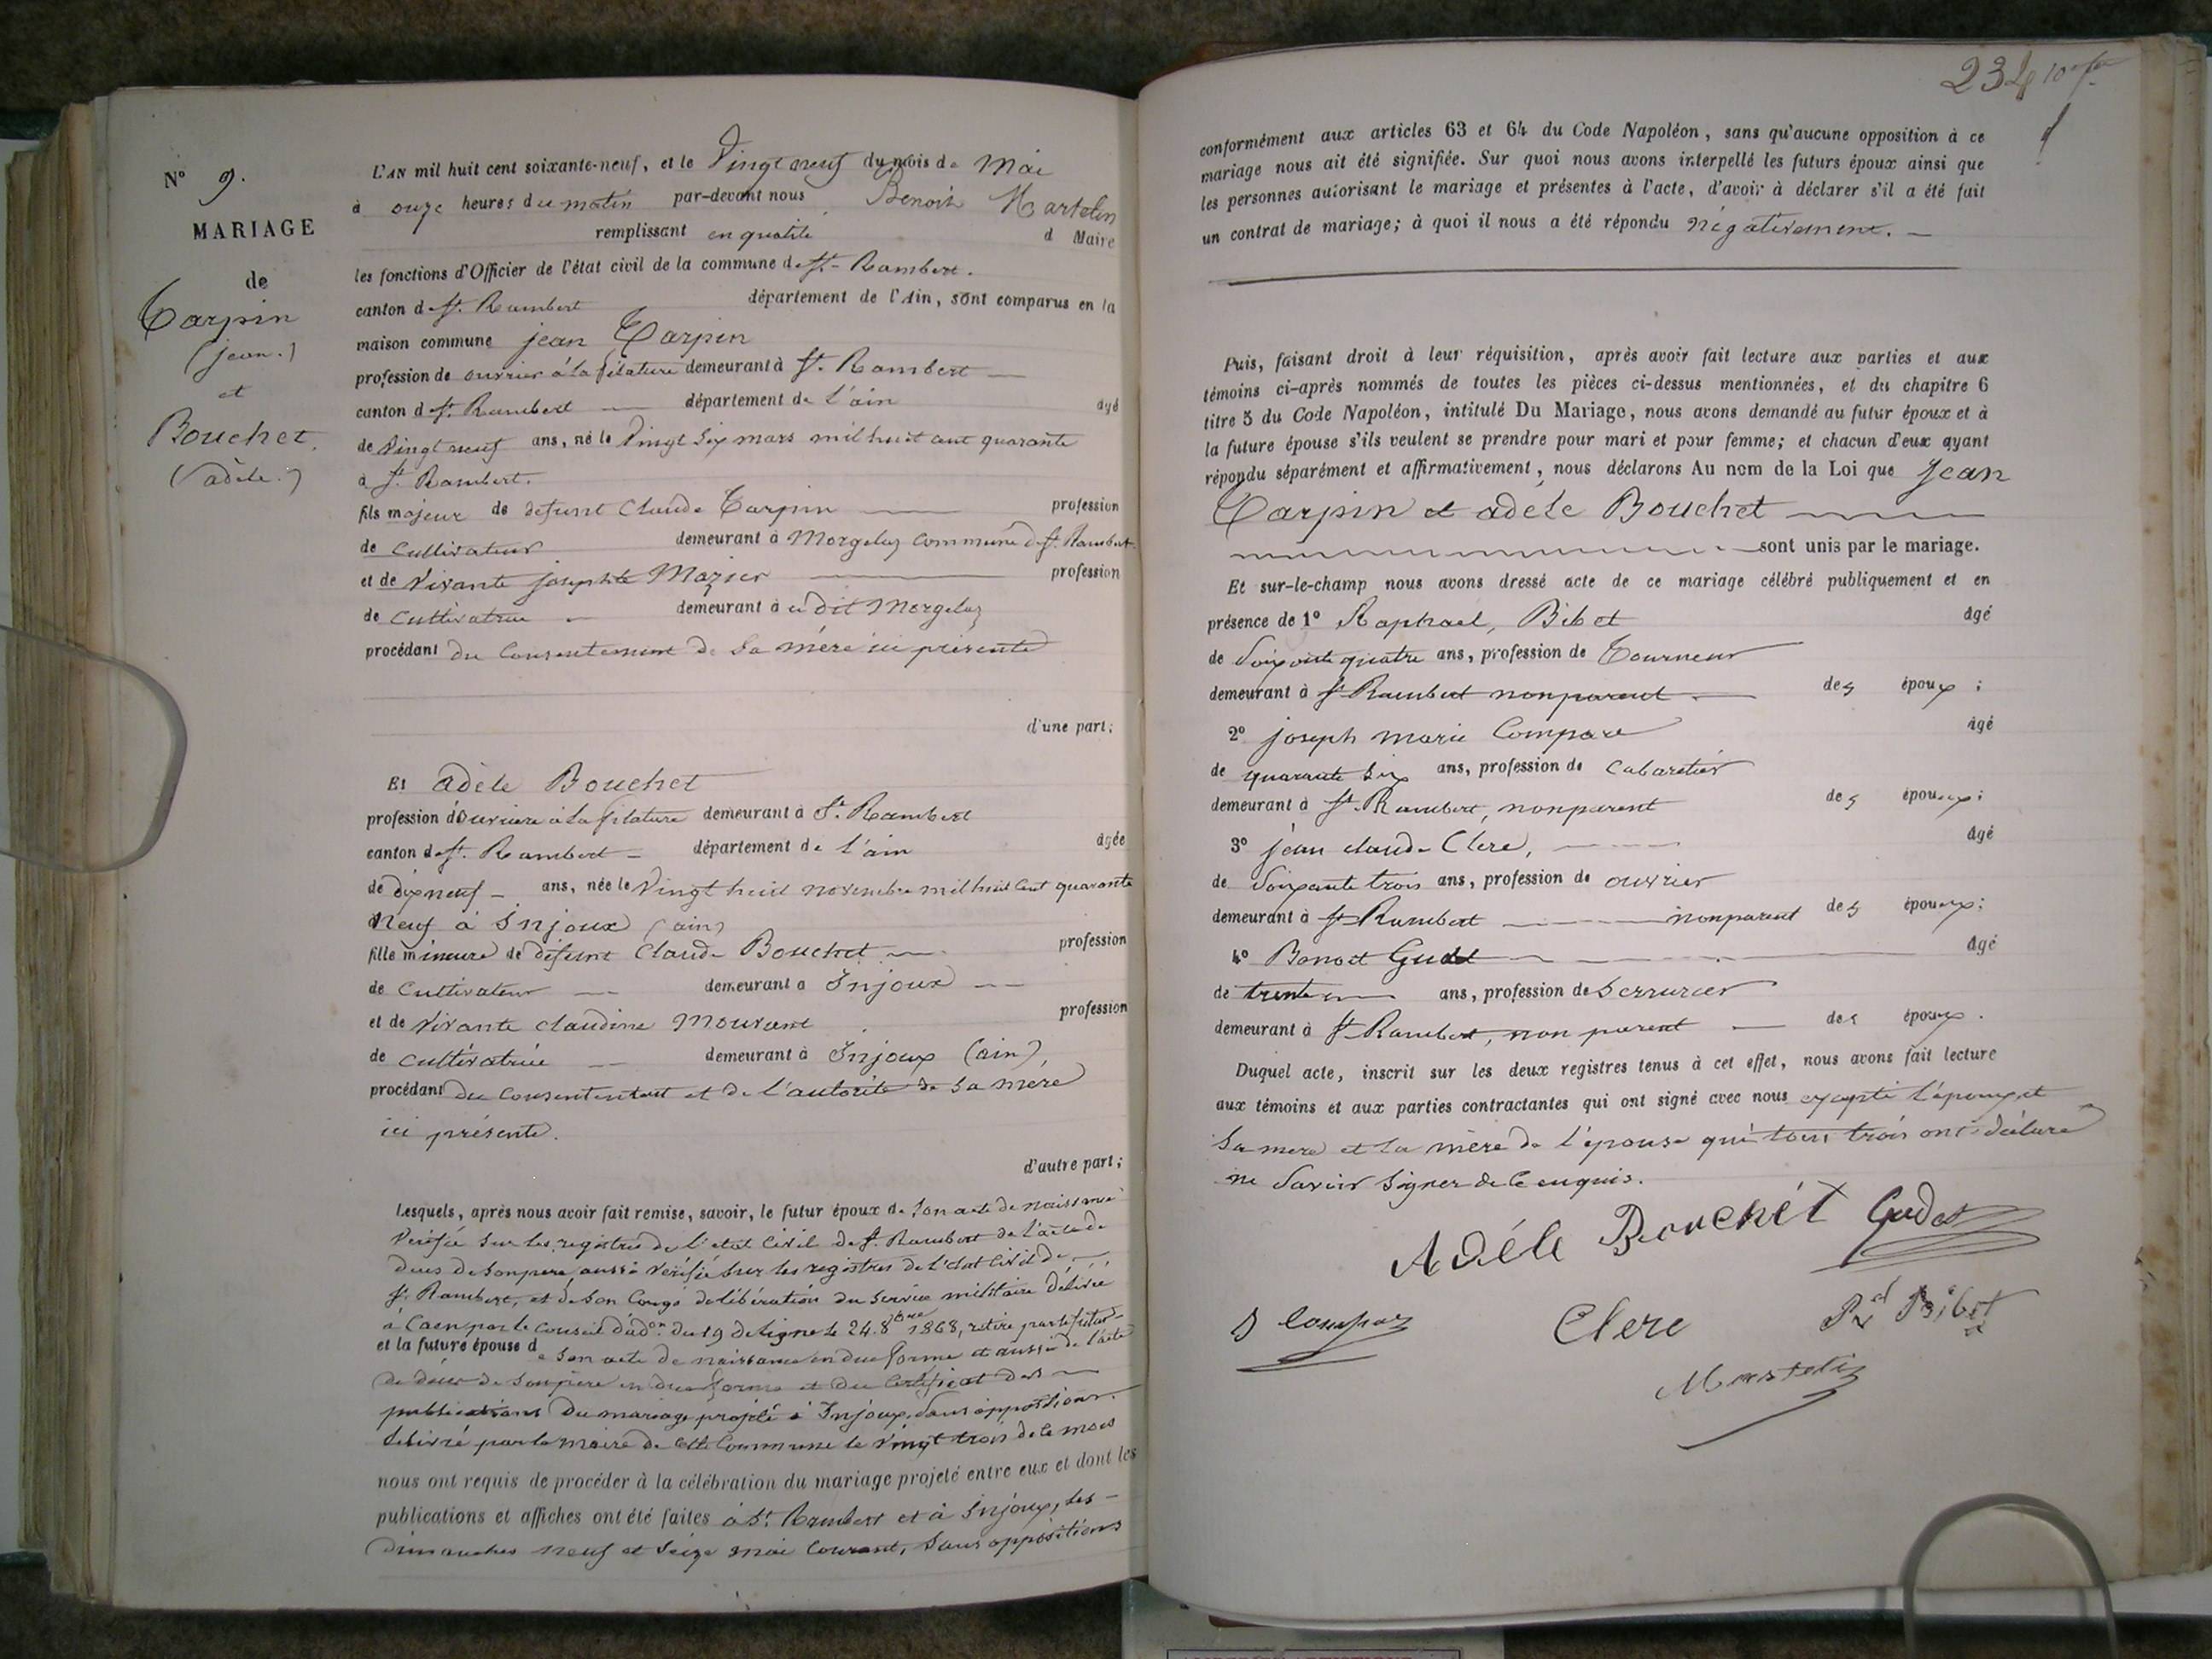 N° 9.
MARIAGE
de
Carpin
(jean.)
et
Bouchet.
(adèle.)
L'AN mil huit cent soixante-neuf, et le Vingt neuf du mois de Mai
à onze heures du matin par-devant nous Benoit Martelin
remplissant en qualité d Maire
les fonctions d'Officier de l'état civil de la commune de St- Rambert.
canton de St. Rambert département de l'Ain, sont comparus en la
maison commune jean Carpin
profession de ouvrier à la filature demeurant à St. Rambert
canton de St. Rambert département de l'ain âgé
de Vingt neuf ans, né le Vingt Six mars mil huit cent quarante
à St. Rambert.
fils majeur de defunt Claude Carpin profession
de Cultivateur demeurant à Morgelas Commune de St. Rambert.
et de Vivante josephte Mazier profession
de Cultivatrice demeurant à u dit Morgelas
procédant du Consentement de Sa mère ici présente
d'une part;
Et adèle Bouchet
profession d'Ouvriere à la filature demeurant à St. Rambert
canton de St. Rambert département de l'ain âgée
de dix neuf ans, née le Vingt huit novembre mil huit Cent quarante
Neuf à Injoux (ain)
fille mineure de défunt Claude Bouchet profession
de Cultivateur demeurant à Injoux
et de Vivante claudine Mourant profession
de cultivatrice demeurant à Injoux (ain),
procédant du Consentement et de l'autorité de Sa mère
ici présente.
d'autre part;
Lesquels, après nous avoir fait remise, savoir, le futur époux de Son acte de naissance
Verifié Sur les registres de l'état Civil de St. Rambert de l'acte de
deces de Son pere, aussi Vérifié Sur les registres de l'état Civil de
St. Rambert, et de Son Congé de libération du Service militaire délivré
à Caen par le Conseil d'adon. du 19 de ligne le 24. 8bre 1868, retiré par le futur
et la future épouse de Son acte de naissance en due forme et aussi de l'acte
de décès de Son père en due forme et du Certificat des
publications du mariage projeté à Injoux, Sans oppositions.
délivré par le maire de cette Commune le Vingt trois de ce mois
nous ont requis de procéder à la célébration du mariage projeté entre eux et dont les
publications et affiches ont été faites à St. Rambert et à Injoux, les
Dimanches neuf et Seize mai Courant, Sans oppositions
234
conformément aux articles 63 et 64 du Code Napoléon, sans qu'aucune opposition à ce
mariage nous ait été signifiée. Sur quoi nous avons interpellé les futurs époux ainsi que
les personnes autorisant le mariage et présentes à l'acte, d'avoir à déclarer s'il a été fait
un contrat de mariage; à quoi il nous a été répondu négativement.
Puis, faisant droit à leur réquisition, après avoir fait lecture aux parties et aux
témoins ci-après nommés de toutes les pièces ci-dessus mentionnées, et du chapitre 6
titre 5 du Code Napoléon, intitulé Du Mariage, nous avons demandé au futur époux et à
la future épouse s'ils veulent se prendre pour mari et pour femme; et chacun d'eux ayant
répondu séparément et affirmativement, nous déclarons Au nom de la Loi que Jean
Carpin et adèle Bouchet
sont unis par le mariage.
Et sur-le-champ nous avons dressé acte de ce mariage célébré publiquement et en
présence de 1° Raphael, Bibet âgé
de Soixante quatre ans, profession de Tourneur
demeurant à St Rambert non parent des époux;
2° joseph marie Compare âgé
de quarante Six ans, profession de Cabaretier
demeurant à St. Rambert, non parent des époux;
3° jean claude Clere, âgé
de Soixante trois ans, profession de ouvrier
demeurant à St Rambert non parent des époux;
4° Benoit Gudet âgé
de trente ans, profession de Serrurier
demeurant à St Rambert, non parent des époux.
Duquel acte, inscrit sur les deux registres tenus à cet effet, nous avons fait lecture
aux témoins et aux parties contractantes qui ont signé avec nous excepté l'époux et
Sa mere et la mère de l'épouse qui tous trois ont déclaré
ne Savoir Signer de ce enquis.
Adéle Bouchét Gudet
Clere
Rd Bibet
Martelin